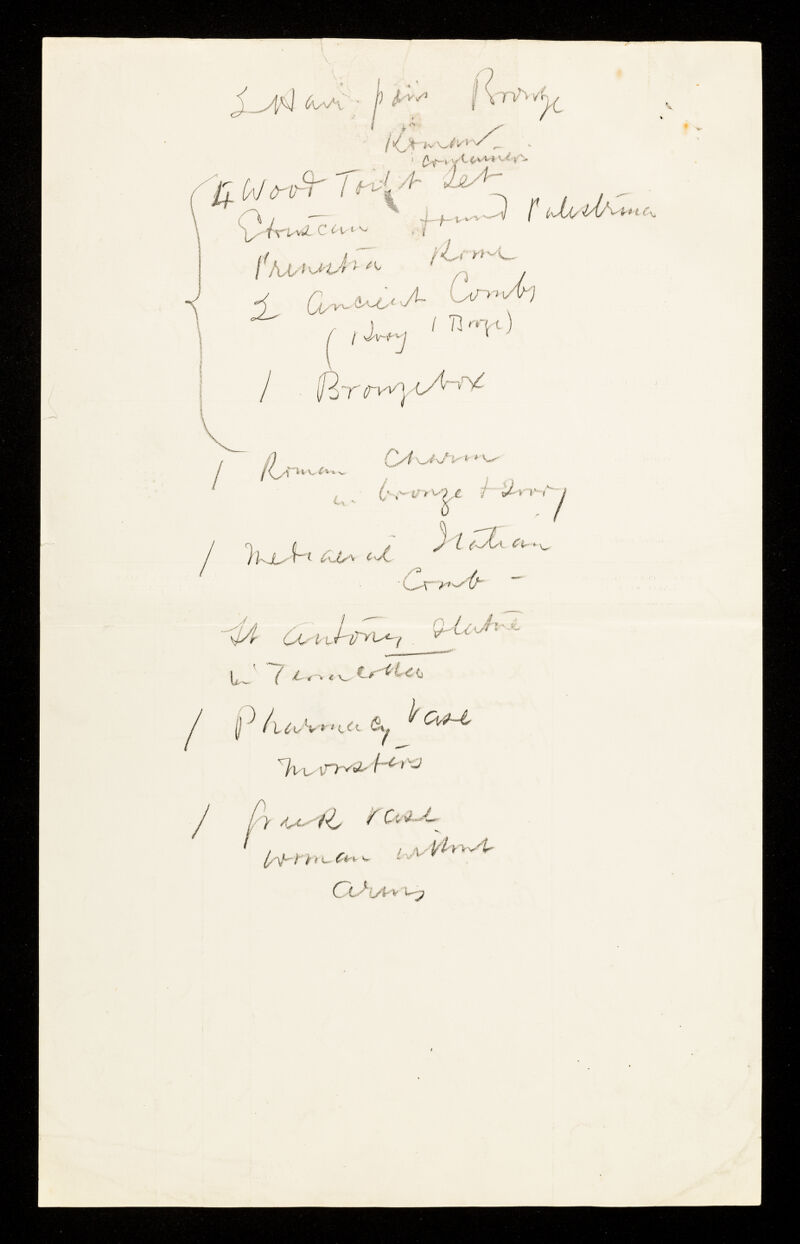 2 Hair pins Bronze
Roman
containers
4 Wood Toilet Set
Etruscan found Palestrina
Prenestra Rome
2 Ancient Combs
(1 Ivory 1 Broze)
1 Bronze box
1 Roman Charm
in bronze + Ivory
1 Mediaeval Italian
Comb -
St Antony statue
in Terracotta
1 Pharmacy Vase
Monsters
1 Greek Vase
woman without
arms